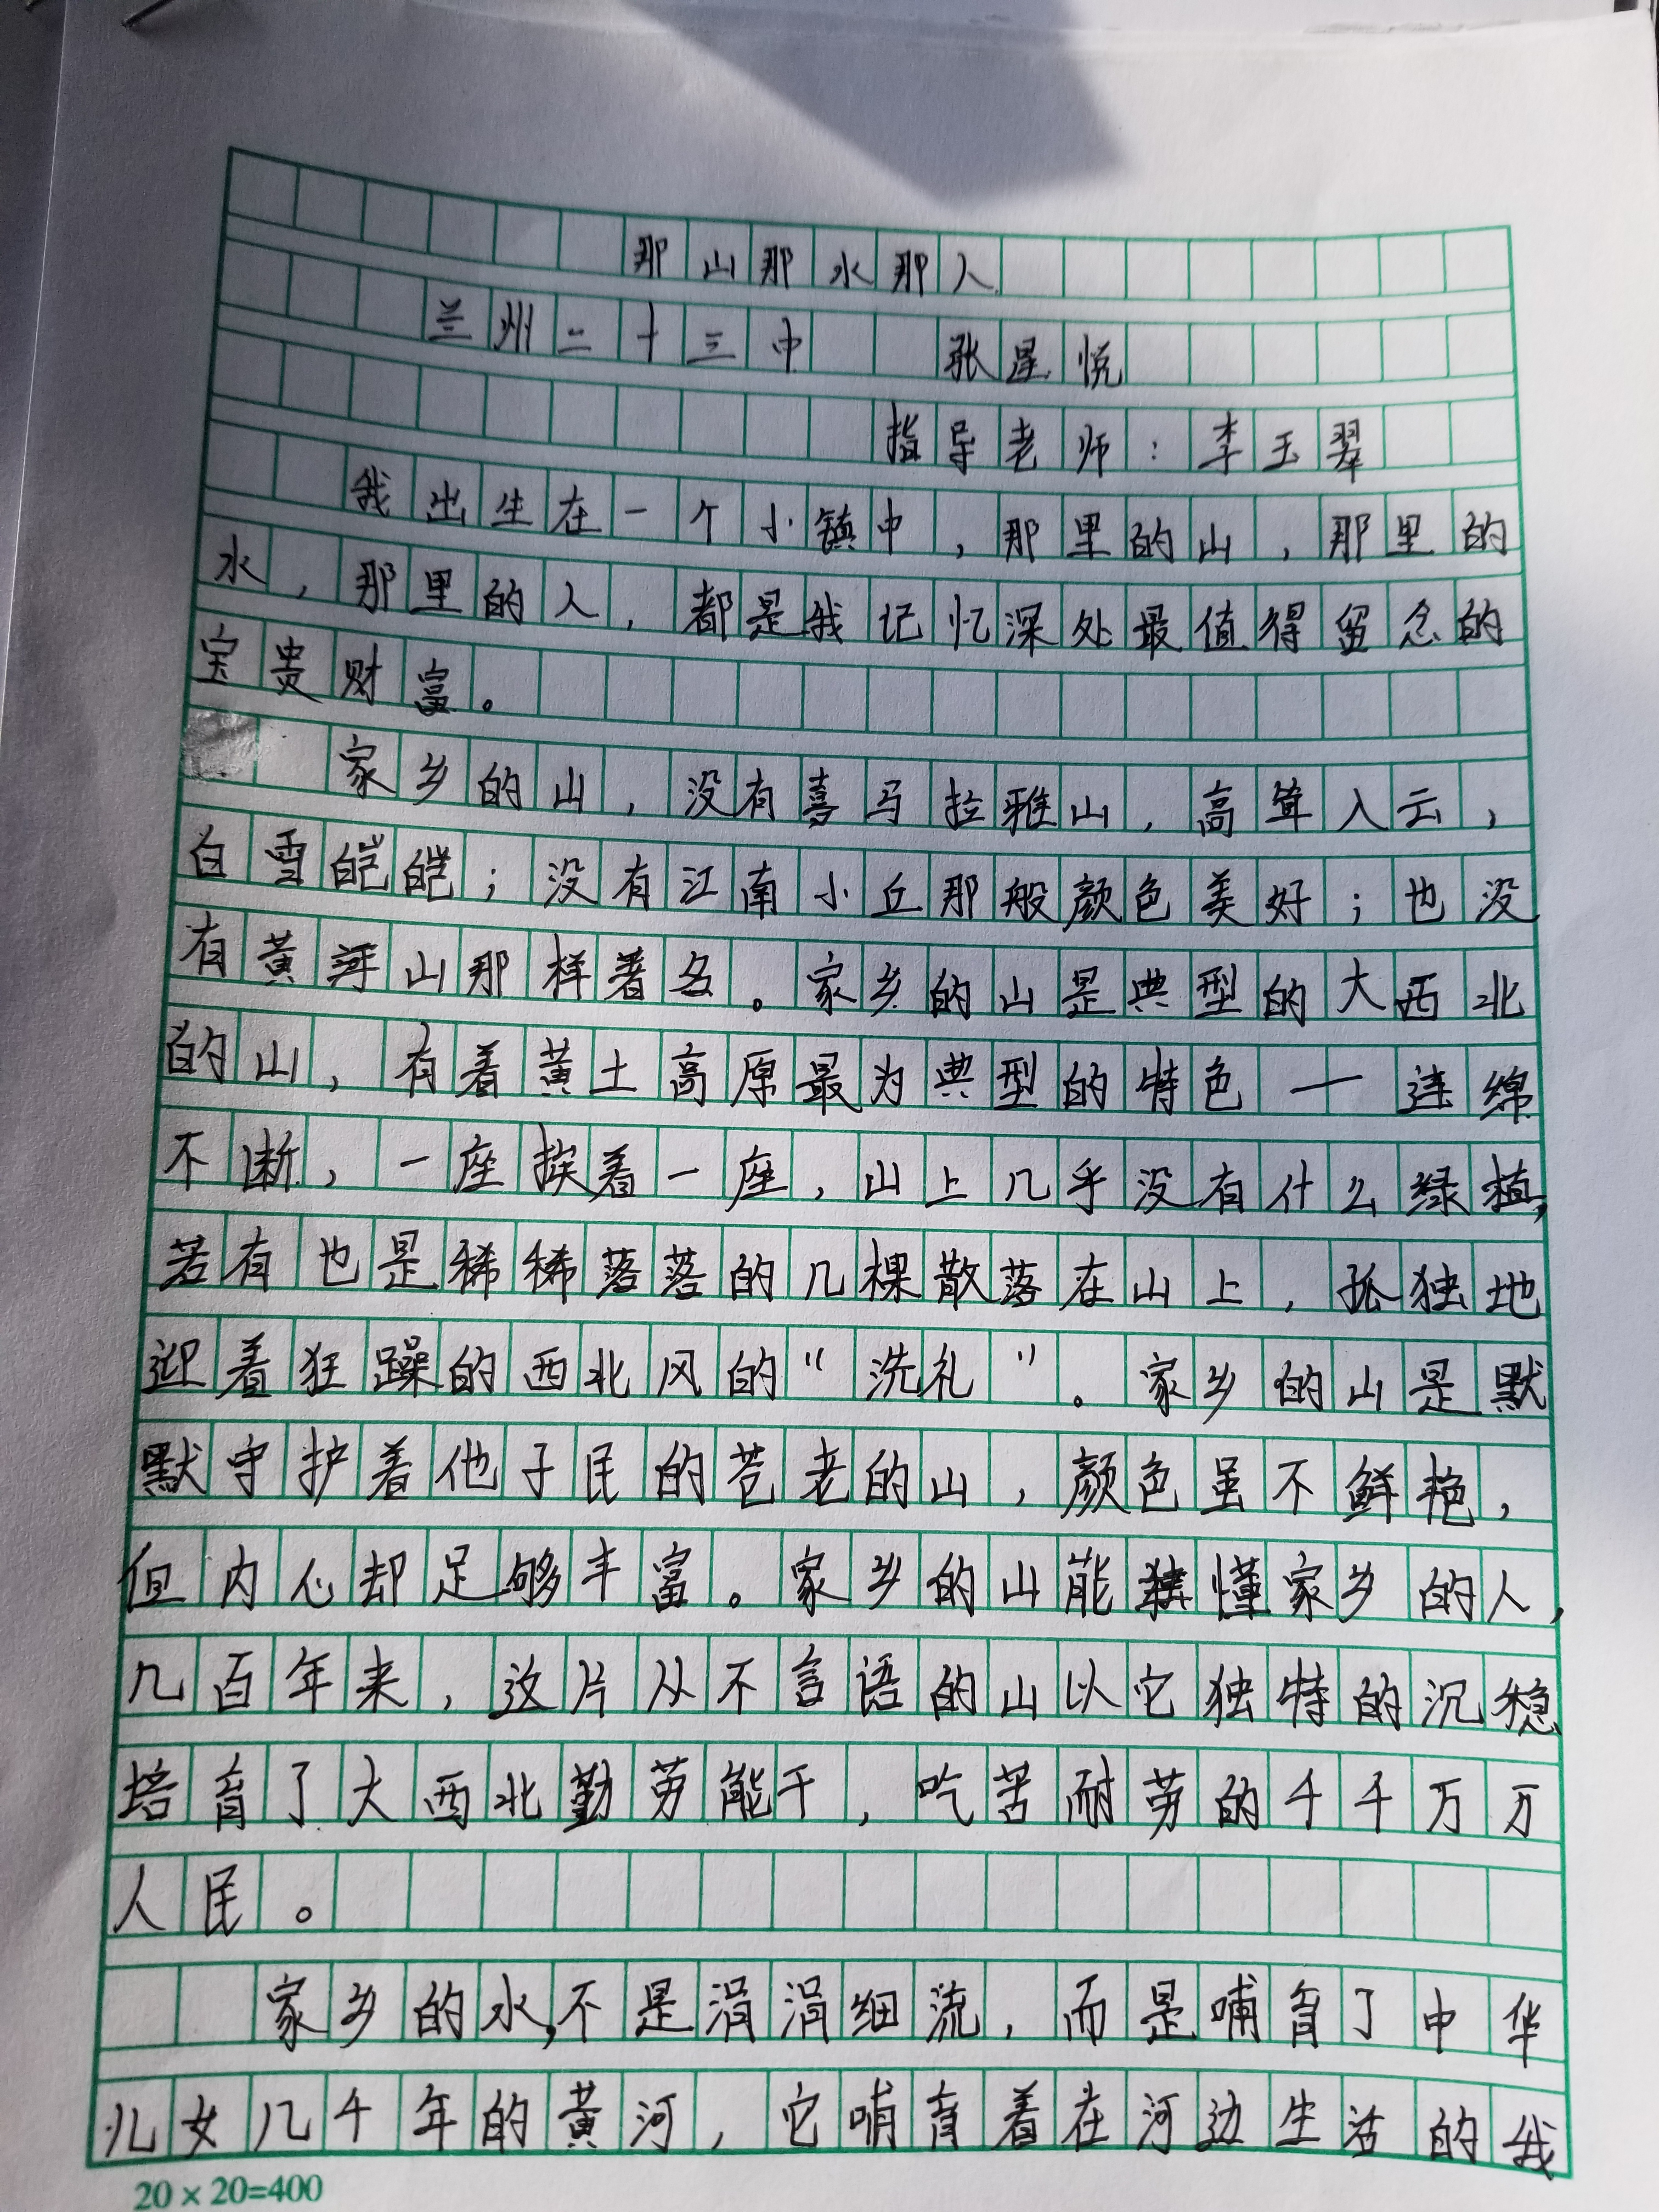 那山那水那人
兰州二十三中 张星悦
指导老师：李玉翠
我出生在一个小镇中，那里的山，那里的
水，那里的人，都是我记忆深处最值得留念的
宝贵财富。
家乡的山，没有喜马拉雅山，高耸入云，
白雪皑皑；没有江南小丘那般颜色美好；也没
有黄河山那样著名。家乡的山是典型的大西北
的山，有着黄土高原最为典型的特色—连绵
不断，一座挨着一座，山上几乎没有什么绿植，
若有也是稀稀落落的几棵散落在山上，孤独地
迎着狂躁的西北风的“洗礼”。家乡的山是默
默守护着他子民的苍老的山，颜色虽不鲜艳，
但内心却足够丰富。家乡的山能懂家乡的人，
几百年来，这片从不言语的山以它独特的沉稳
培育了大西北勤劳能干，吃苦耐劳的千千万万
人民。
家乡的水，不是涓涓细流，而是哺育了中华
儿女几千年的黄河，它哺育着在河边生活的我
20×20=400